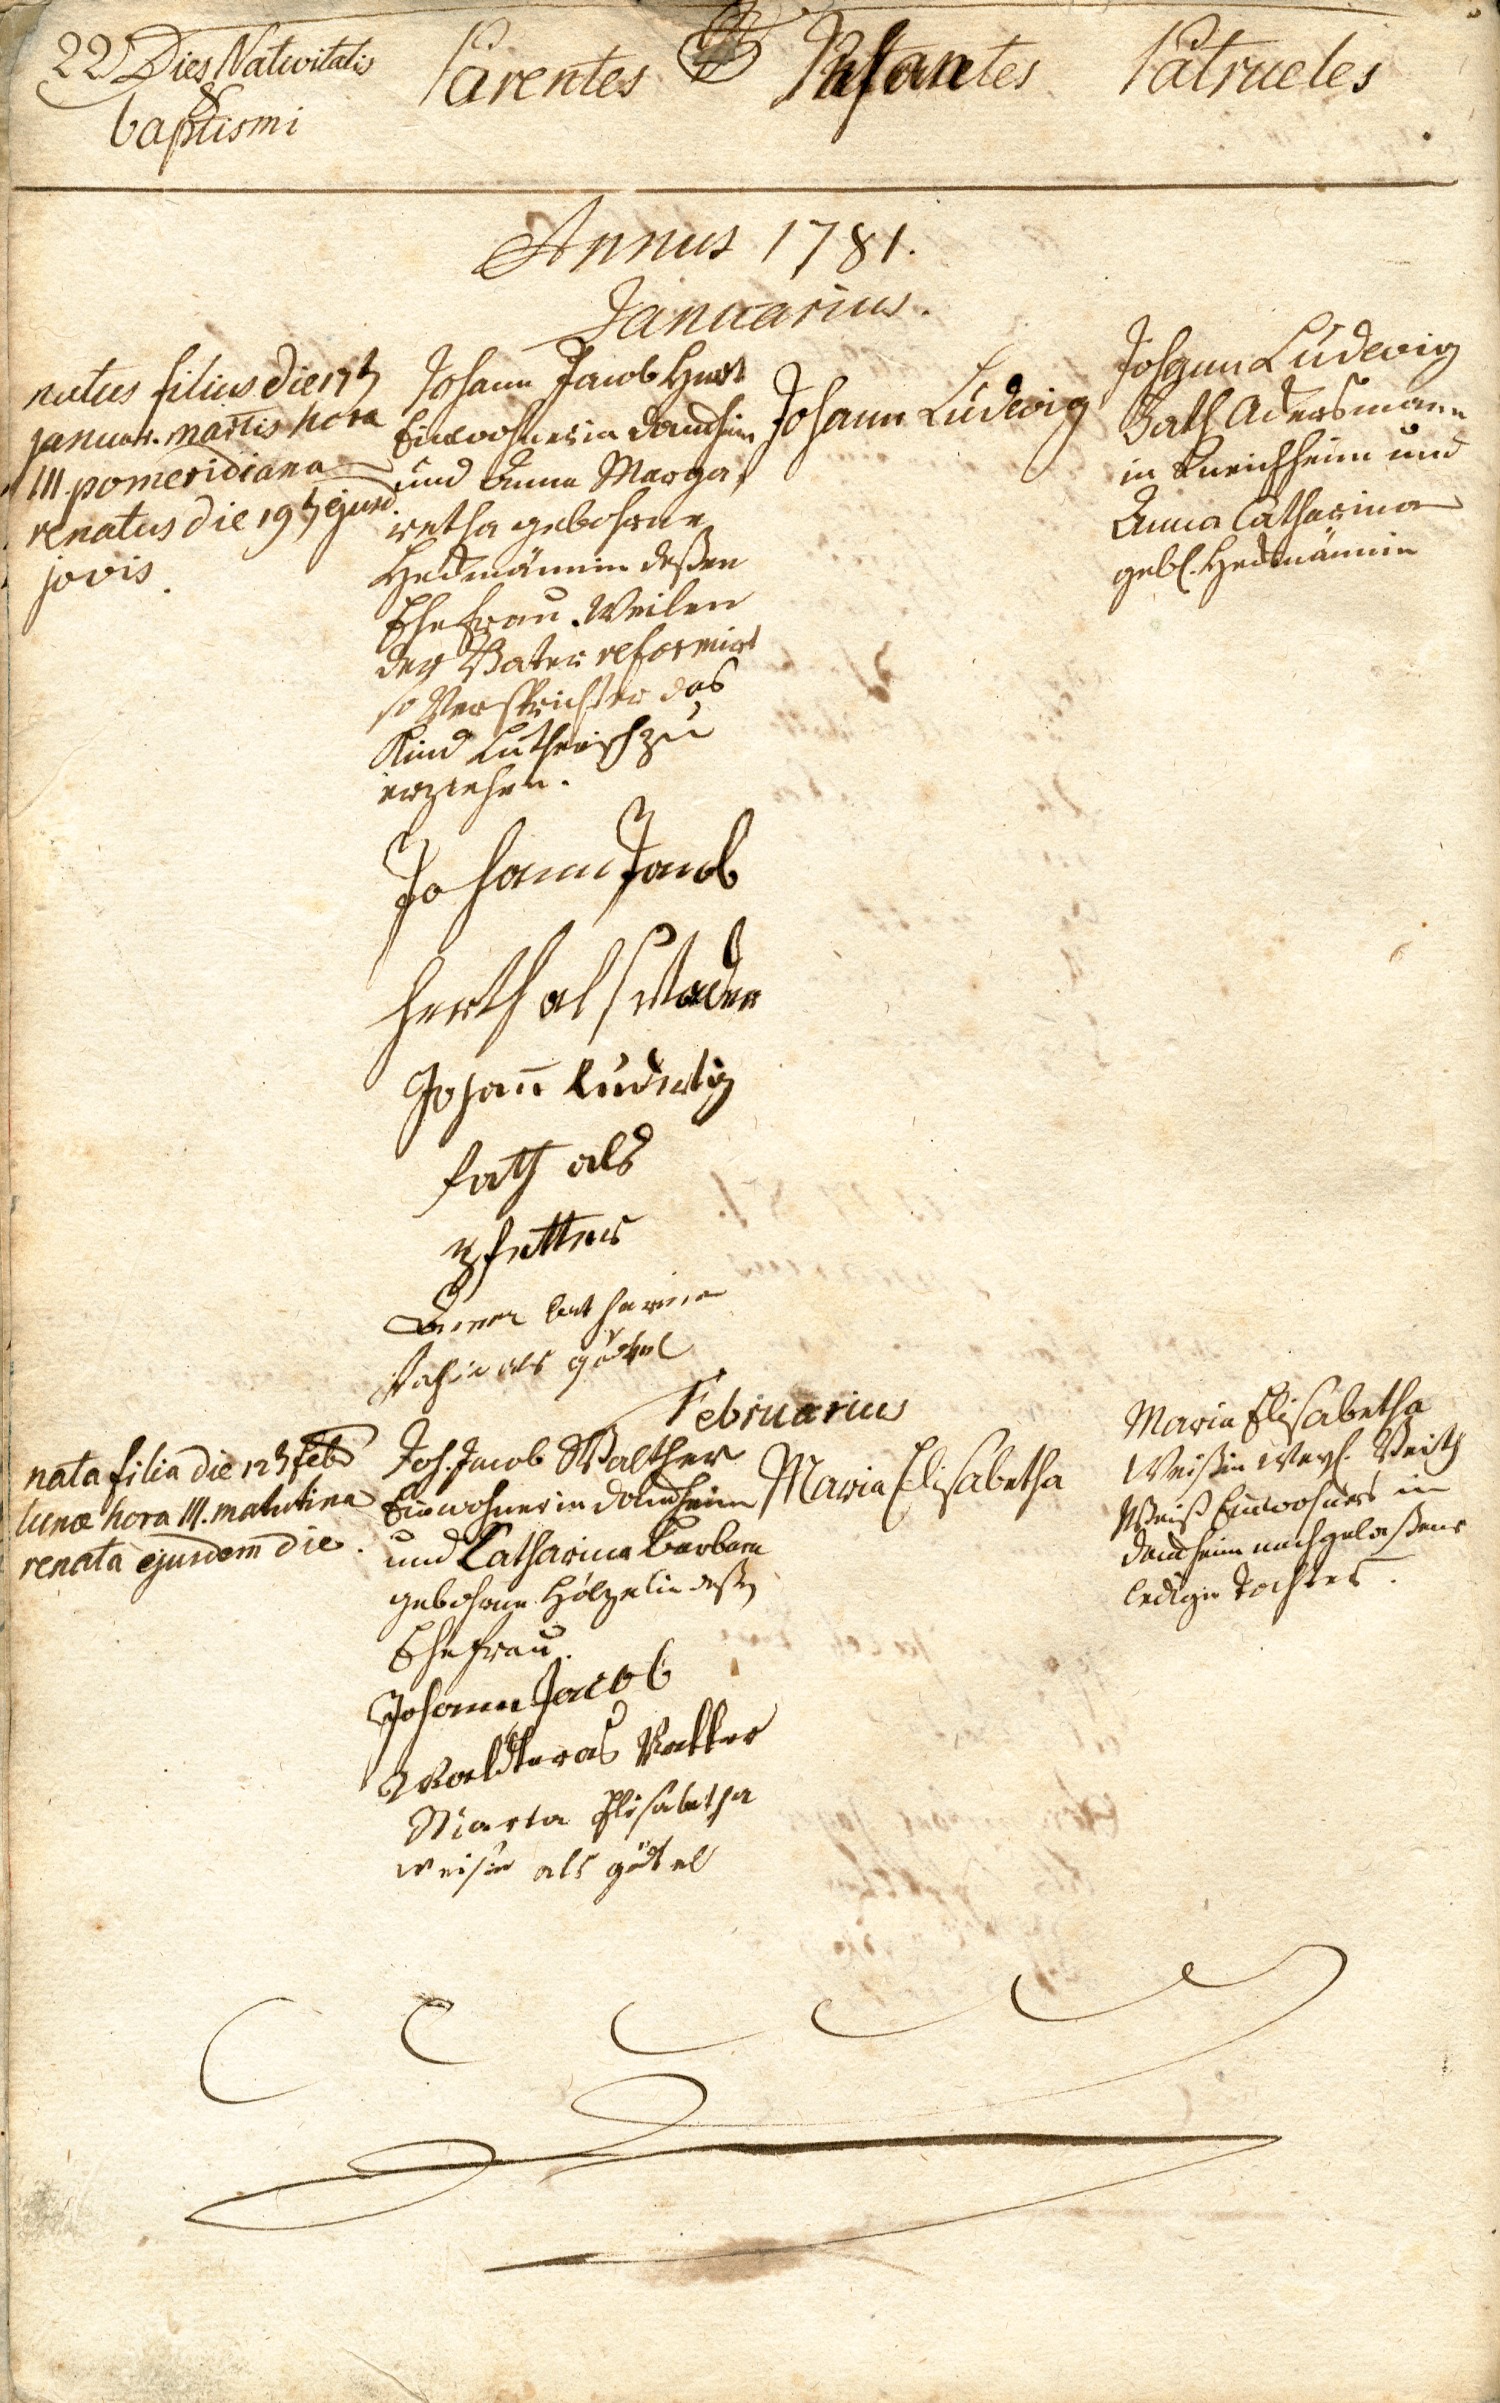 22 Dies Nativitatis
&
baptismi
Parentes
Infantes
Patrueles
Annus 1781.
Januarius.
natus filius die 17
januar. martis hora
III. pomeridiana
renatus die 19 ejusd.
jovis.
Johann Jacob Hert
Einwohner in
und Anna Marga,
retha gebohrne
Heckmännin deßen
Ehefrau. Weilen
der Vater reformirt
so verspricht er das
Kind Lutherisch zu
erziehen.
Johann Jacob
herth als Vader
Johann Ludwig
fath als
pfetter
Anna Catharina
als gödtel
Johann Ludwig
Johann Ludwig
Vath Ackersmann
in und
Anna Catharina
gebl. Heckmännin
Februarius
nata filia die 12 febr
lunæ hora III. matutina
renata ejusdem die.
Joh. Jacob Walther
Einwohner in
und Catharina Barbara
gebohrne Hölzelin deßen
Ehefrau.
Johann Jacob
Vatter
Maria Elisabetha
weisin als gödtel
Maria Elisabetha
Maria Elisabetha
Weißin weyl. Veith
Weiß Einwohners in
nachgelaßene
ledige Tochter.